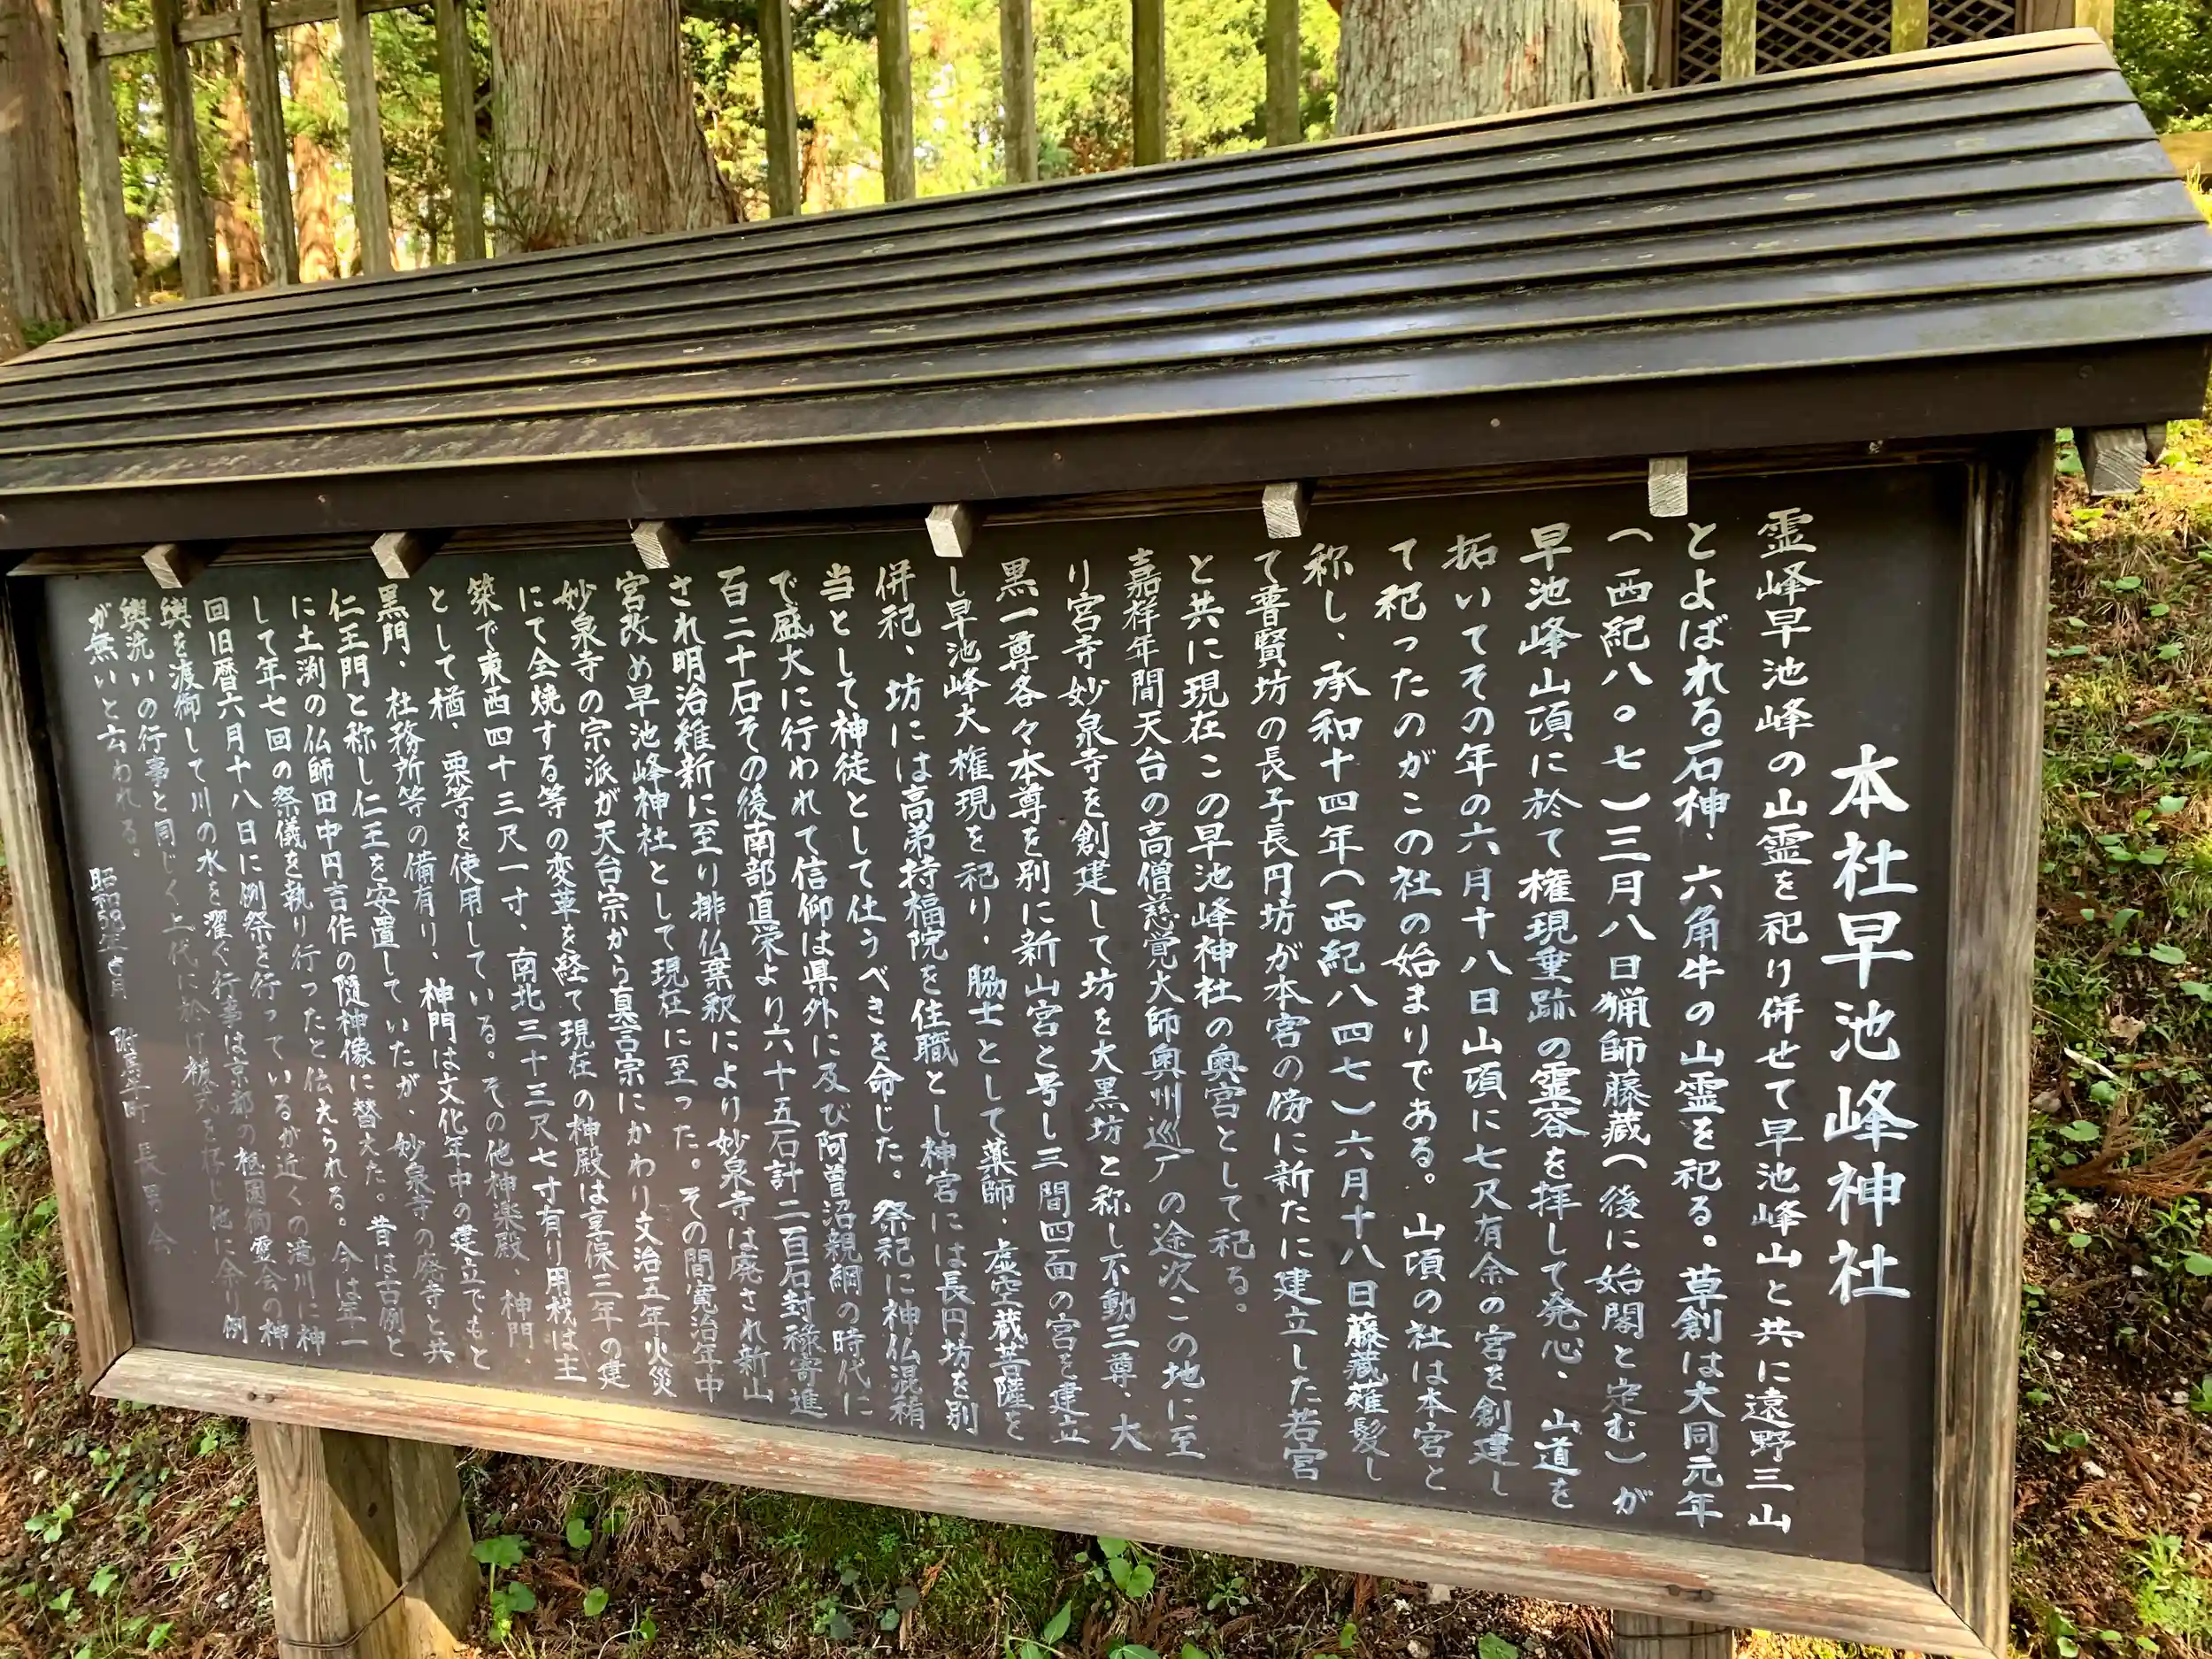 本社早池峰神社
霊峰早池峰の山霊を祀り併せて早池峰山と共に遠野三山
とよばれる石神、六角牛の山霊を祀る。草創は大同元年
（西紀八〇七）三月八日猟師藤蔵（後に始閣と定む）が
早池峰山頂に於て権現垂跡の霊容を拝して発心、山道を
拓いてその年の六月十八日山頂に七尺有余の宮を創建し
て祀ったのがこの社の始まりである。山頂の社は本宮と
称し、承和十四年（西紀八四七）六月十八日藤蔵薙髪し
て普賢坊の長子長円坊が本宮の傍に新たに建立した若宮
と共に現在この早池峰神社の奥宮として祀る。
嘉祥年間天台の高僧慈覚大師奥州巡厂の途次この地に至
り宮寺妙泉寺を創建して坊を大黒坊と称し不動三尊、大
黒一尊各々本尊を別に新山宮と号し三間四面の宮を建立
し早池峰大権現を祀り、脇士として薬師、虚空蔵菩薩を
併祀、坊には高弟持福院を住職とし神宮には長円坊を別
当として神徒として仕うべきを命じた。祭祀に神仏混淆
で盛大に行われて信仰は県外に及び阿曽沼親綱の時代に
百二十石その後南部直栄より六十五石計二百石封禄寄進
され明治維新に至り排仏棄釈により妙泉寺は廃され新山
宮改め早池峰神社として現在に至った。その間寛治年中
妙泉寺の宗派が天台宗から真言宗にかわり文治五年火災
にて全焼する等の変革を経て現在の神殿は享保三年の建
築で東西四十三尺一寸、南北三十三尺七寸有り用材は主
として楢、栗等を使用している。その他神楽殿、神門
黒門、社務所等の備有り、神門は文化年中の建立でもと
仁王門と称し仁王を安置していたが、妙泉寺の廃寺と共
に土渕の仏師田中円吉作の随神像に替えた。昔は古例と
して年七回の祭儀を執り行ったと伝えられる。今は年一
回旧暦六月十八日に例祭を行っているが近くの滝川に神
輿を渡御して川の水を濯ぐ行事は京都の祇園御霊会の神
輿洗いの行事と同じく上代に於け 式を し他に余り例
が無いと云われる。
昭和 年 月 附馬牛町 長男会